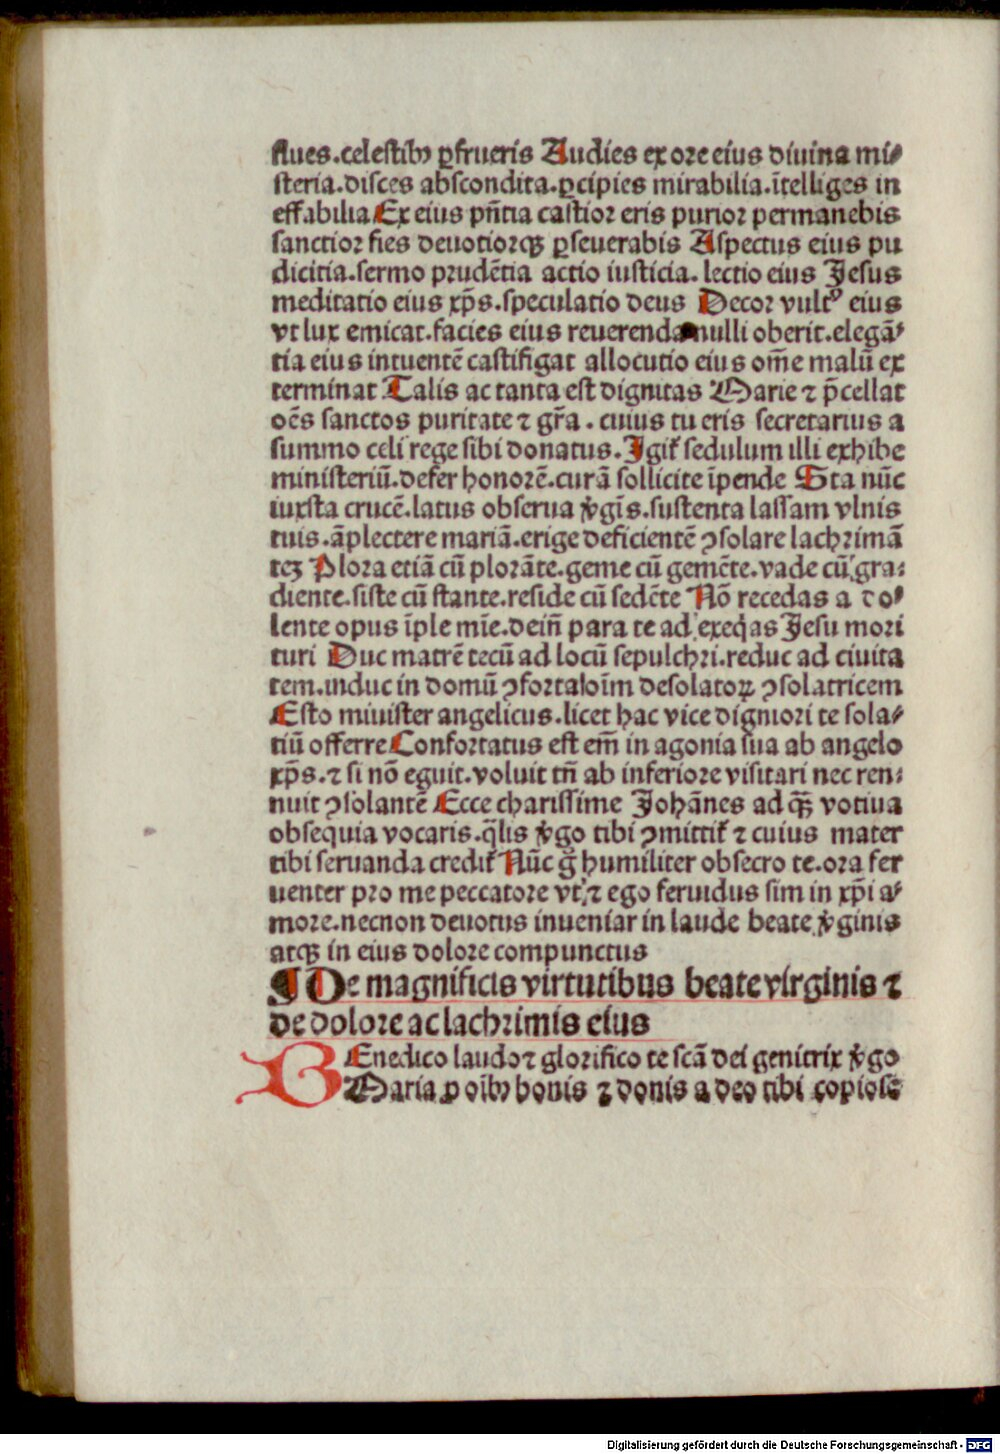 flues.celestibꝰ ꝑfrueris Audies ex ore eius diuina mi⸗
steria.disces abscondita.ꝑcipies mirabilia.ītelliges in
effabilia Ex eius pn̄tia castior eris purior permanebis
sanctior fies deuotiorqꝫ ꝑseuerabis Aspectus eius pu
dicitia.sermo prudētia actio iusticia. lectio eius Jesus
meditatio eius xp̄s.speculatio deus Decor vultꝰ eius
vt lux emicat.facies eius reuerenda nulli oberit.elegā⸗
tia eius intuentē castifigat allocutio eius om̄e malū ex
terminat Talis ac tanta est dignitas Marie ⁊ p̄cellat
oēs sanctos puritate ⁊ gr̄a . cuius tu eris secretarius a
summo celi rege sibi donatus. Igit̄ sedulum illi exhibe
ministeriū.defer honorē.curā sollicite īpende Sta nūc
iuxsta crucē.latus obserua v̄gīs.sustenta lassam vlnis
tuis.āplectere mariā.erige deficientē ꝯsolare lachrimā
teꝫ Plora etiā cū plorāte.geme cū gemēte.vade cū gra⸗
diente.siste cū stante.reside cū sedēte Nō recedas a do⸗
lente opus īple mīe.dein̄ para te ad exeq̄as Jesu mori
turi Duc matrē tecū ad locū sepulchri.reduc ad ciuita
tem.induc in domū ꝯforta oīm desolatoꝝ ꝯsolatricem
Esto minister angelicus.licet hac vice digniori te sola⸗
tiū offerre Confortatus est em̄ in agonia sua ab angelo
xp̄s.⁊ si nō eguit.voluit tn̄ ab inferiore visitari nec ren⸗
nuit ꝯsolantē Ecce charissime Johānes ad qꝫ̄ votiua
obsequia vocaris.q̄lis v̄go tibi ꝯmittit̄ ⁊ cuius mater
tibi seruanda credit̄ Nūc g̊ humiliter obsecro te.ora fer
uenter pro me peccatore vt ⁊ ego feruidus sim in xp̄i a⸗
more.necnon deuotus inueniar in laude beate v̄ginis
atqꝫ in eius dolore compunctus
¶ De magnificis virtutibus beate virginis ⁊
de dolore ac lachrimis eius
BEnedico laudo ⁊ glorifico te scā dei genitrix v̄go
Maria ꝓ oībꝰ bonis ⁊ donis a deo tibi copiose
Digitalisierung gefördert durch die Deutsche Forschungsgemeinschaft - DFG